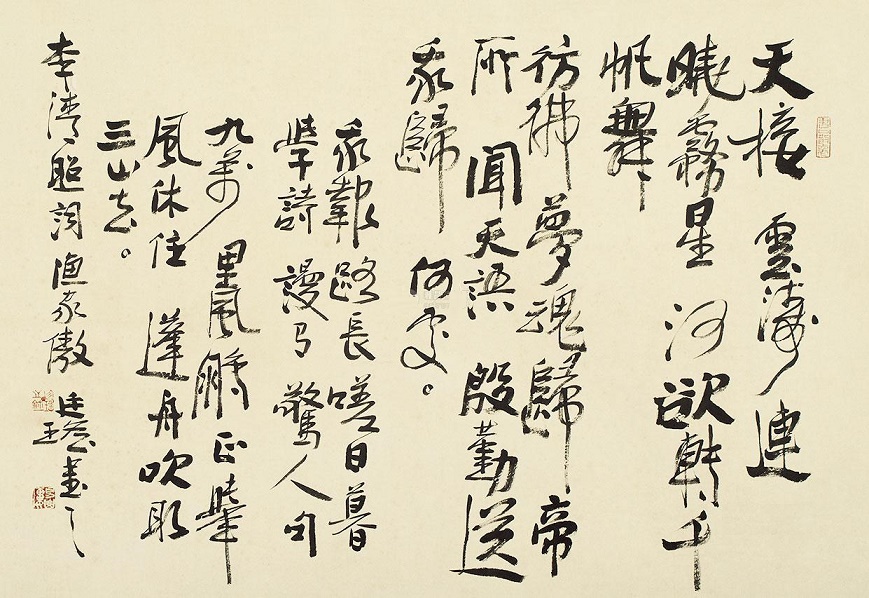 天接雲濤連
曉霧星河欲轉千
帆舞
彷彿夢魂歸帝
所聞天語殷勤送
我歸何處。
我報路長嗟日暮
學詩謾有驚人句
九萬里風鵬正舉
風休住蓬舟吹取
三山去。
李清照詞漁家傲
書之